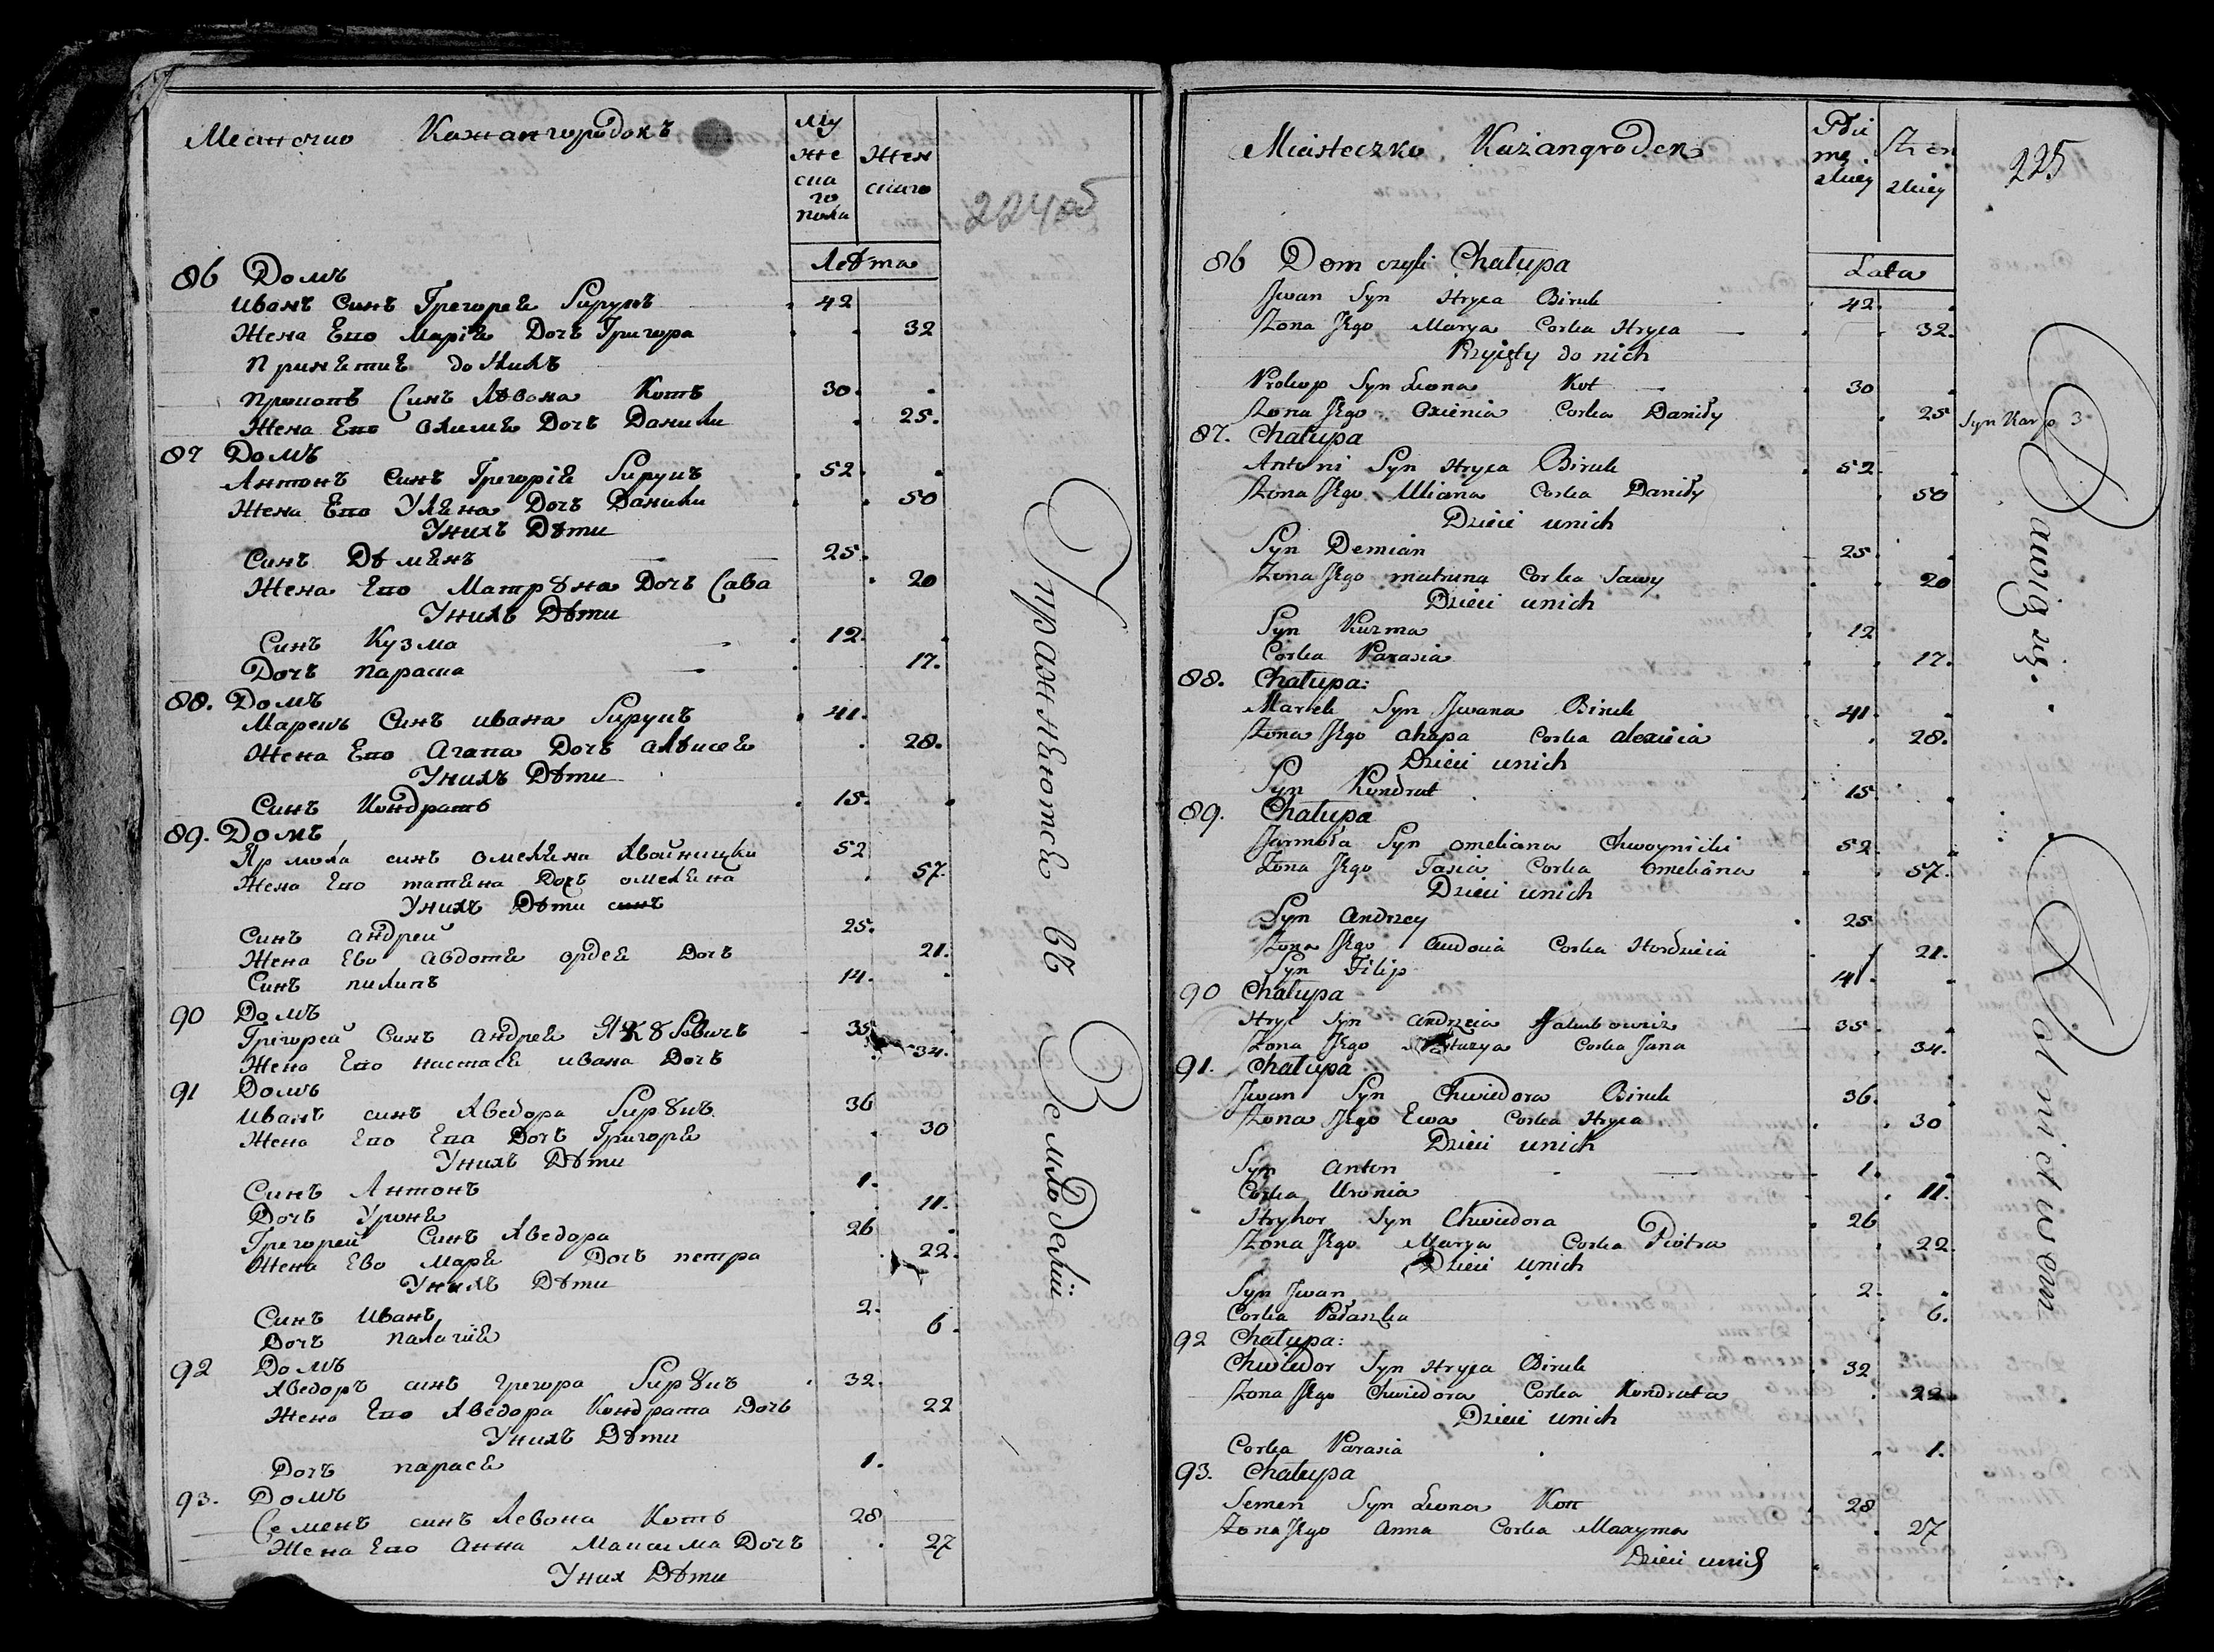 Местечко Кажангородокъ
Му
же
ска
го
пола
Жен
скаго
224об
Лѣта
86 Домъ
Иванъ Синъ Грегорея Бирукъ 42
Жена Его Марія Дочъ Григора 32
Принетие до Нихъ
Прокопъ Синъ Лѣвона Котъ 30.
Жена Его Дочъ Данили 25.
87 Домъ
Антонъ Синъ Грегорія Бирукъ 52.
Жена Его Уляна Дочъ Данили 50
Унихъ Дѣти
Синъ Дѣмянъ 25.
Жена Его Матрұна Дочъ Сава 20
Унихъ Дѣти
Синъ Кузма 12.
Дочъ Параса 17.
88. Домъ
Марекъ Синъ ивана Бирукъ 41.
Жена Его Агапа Дочъ Алѣксея 28.
Унихъ Дѣти
Синъ Кондратъ 15.
89. Домъ
Ярмола синъ омеляна Хвойницки 52
Жена Его татяна Дочъ омеляна 57.
Унихъ Дѣти синъ
Синъ андрей 25.
Жена Ево авдотя ордея Дочъ 21.
Синъ пилипъ 14.
90 Домъ
Грігорей Синъ андрея Якұбовичъ 35
Жена Его настася ивана Дочъ 34.
91 Домъ
Иванъ синъ Хведора Бирұкъ 36
Жена Его Ева Дочъ Григоря 30
Унихъ Дѣти
Синъ Антонъ 1.
Дочъ Уроня 11.
Грегорей Синъ Хведора 26
Жена Ево Маря Дочъ петра 22.
Унихъ Дѣти
Синъ Иванъ 2.
Дочъ палагия 6.
92 Домъ
Хведоръ синъ григора Бирұкъ 32.
Жена Его Хведора Кондрата Дочъ 22
Унихъ Дѣти
Дочъ парася 1.
93. Домъ
Семенъ синъ Левона Котъ 28
Жена Его Анна Максима Дочъ 27
Уних Дѣти
Упражняются въ Земледелій
Miasteczko Każangrodek
Płci
mę
zkiey
Żeń
zkiey
225
Lata
86 Dom czyli Chałupa
Jwan Syn Hryca Biruk 42.
Żona Jego Marya Corka Hryca 32.
Przyięty do nich
Prokop Syn Leona Kot 30
Żona Jego Oxienia Corka Daniły 25 Syn Karp 3
87. Chałupa
Antoni Syn Hryca Biruk 52.
Żona Jego Uliana Corka Daniły 50
Dzieci unich
Syn Demian 25.
Żona Jego matruna Corka Sawy 20
Dzieci unich
Syn Kuzma 12
Corka Parasia 17.
88. Chałupa:
Marek Syn Jwana Biruk 41.
Żona Jego ahapa Corka alexieia 28.
Dzieci unich
Syn Kondrat 15
89. Chałupa
Jarmoła Syn omeliana Chwoynicki 52.
Żona Jego Tasia Corka Omeliana 57.
Dzieci unich
Syn Andrzey 25
Żona Jego Audocia Corka Hordzieia 21.
Syn Filip 14.
90 Chałupa
Hryc Syn andrzeia Jakubowicz 35
Żona Jego Nastazya Corka Jana 34.
91. Chałupa
Jwan Syn Chwiedora Biruk 36.
Żona Jego Ewa Corka Hryca 30
Dzieci unich
Syn Anton 1.
Corka Uronia 11.
Hryhor Syn Chwiedora 26
Żona Jego Marya Corka Piotra 22.
Dzieci unich
Syn Jwan 2.
Corka Pałaszka 6.
92 Chałupa:
Chwiedor Syn Hryca Biruk 32
Żona Jego Chwiedora Corka Kondrata 22
Dzieci unich
Corka Parasia 1.
93. Chałupa
Semen Syn Leona Kott 28
Żona Jego Anna Corka Maxyma 27
Dzieci unich
Bawią się. Rolnictwem